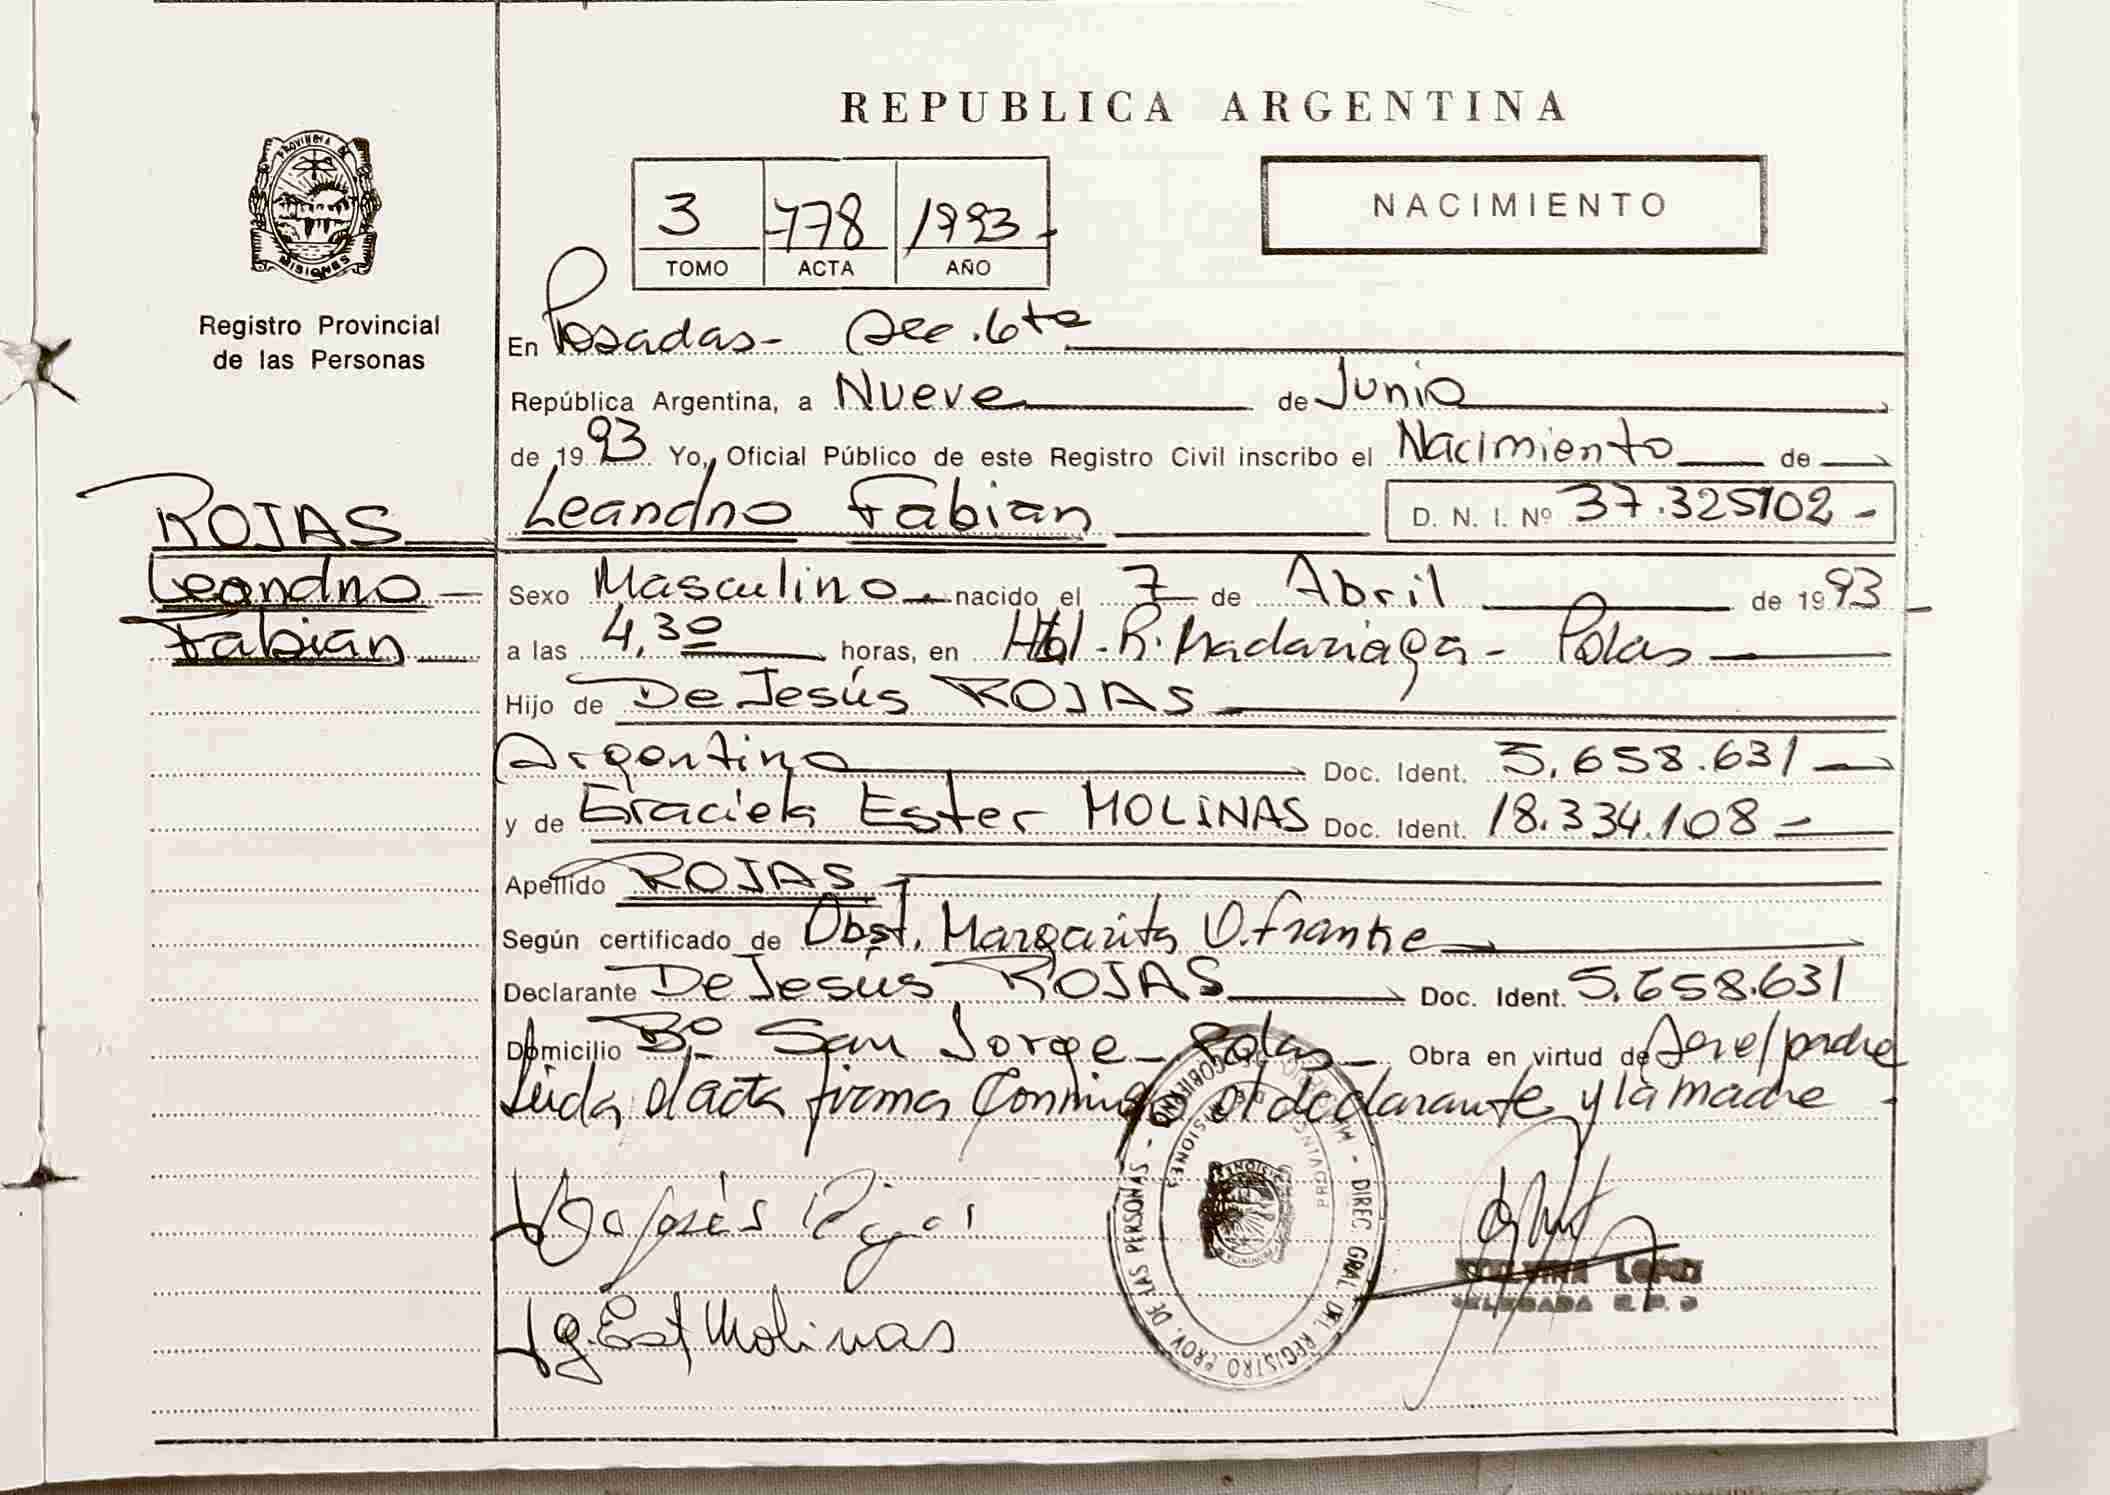 REPUBLICA ARGENTINA
PROVINCIA DE
MISIONES
Registro Provincial
de las Personas
3 778 1993-
TOMO ACTA AÑO
NACIMIENTO
En Posadas- Sec. 6ta
República Argentina, a Nueve de Junio
de 1993 Yo, Oficial Público de este Registro Civil inscribo el Nacimiento de
ROJAS
Leandro
Fabian
Leandro Fabian D. N. I. Nº 37.325102-
Sexo Masculino nacido el 7 de Abril de 1993
a las 4,30 horas, en Htal - R. Madariaga - Pdas
Hijo de De Jesús ROJAS
Argentino Doc. Ident. 5.658.631
y de Graciela Ester MOLINAS Doc. Ident. 18.334.108-
Apellido ROJAS
Según certificado de Obst. Margarita O. Franke
Declarante De Jesús ROJAS Doc. Ident. 5.658.631
Domicilio Bº San Jorge - Pdas - Obra en virtud de Ser el padre
Leida el acta firma Conmigo el declarante y la madre
De Jesús Rojas
g. Est Molinas
DIREC. GRAL. DEL REGISTRO PROV. DE LAS PERSONAS
PROVINCIA DE MISIONES
LOPEZ
DELEGADA R. P.